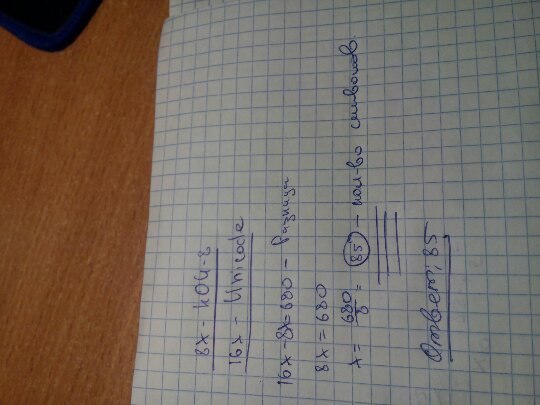 8x - КОИ-8
16x - Unicode
16x-8x=680 - Разница
8x = 680
x = 680/8 = 85 - кол-во символов.
Ответ: 85